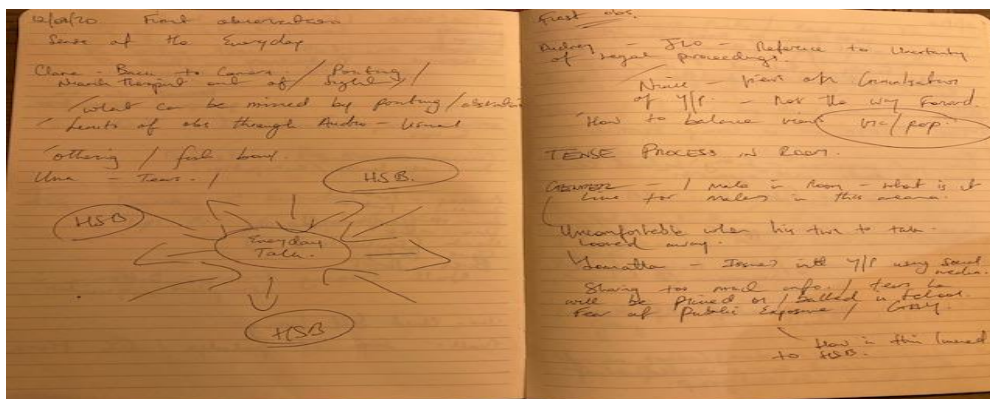 First observation
Sense of the Everyday
Back to Camera / Pointing /
out of sight /
what can be missed by pointing /
Limits of obs through Audio - Visual
othering / feel bad
- Tears. /
HSB.
HSB
Everyday
Talk.
HSB
First obs.
- Reference to Uncertainty
of legal proceedings.
- views of Criminalisation
of Y/P. - Not the way forward.
How to balance views vic / perp.
TENSE PROCESS IN ROOM.
- 1 male in Room - what is it
like for males in this arena.
Uncomfortable when his turn to talk.
looked away.
- Issues with Y/P using social
media.
Sharing too much info. / fears he
will be / bullied in school.
Fear of Public Exposure /
How is this linked
to HSB.